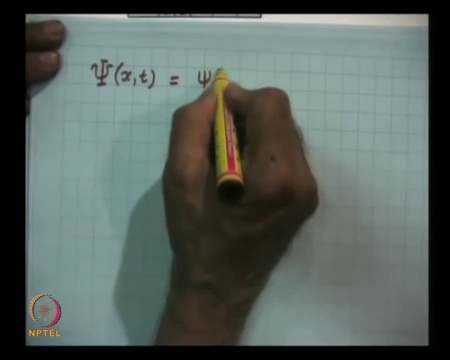 Ψ(x,t) = ψ
NPTEL